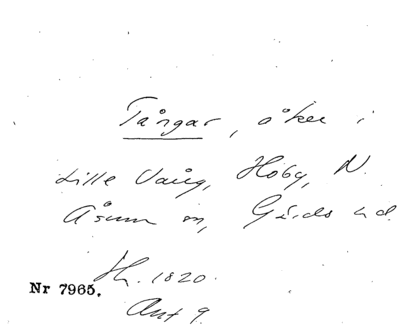 Tångar, åker i
Lille Vång, Hoby, N.
Åsum sn, Gärds hd.
1820.
Nr 7965.
Ant 9.